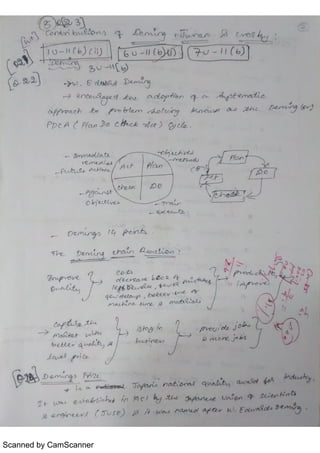 Contributions of Deming, Juran & Crosby:
1U-11(b)(ii) 6U-11(b)(i) 7U-11(b)
Deming 3U-11(b)
→ W. Edward Deming
→ encouraged the adoption of a systematic
approach to problem solving known as the Deming (or)
PDCA (Plan Do Check Act) Cycle.
- Immediate remedies
- Future actions
- objectives
- method
Act Plan
Check DO
- Against objectives
- Train
- execute
Plan
DO
Check
Act
- Demings 14 points
The Deming chain Reaction:
Improve quality
costs decrease
machine time & materials
productivity improves
→ capture the market with better quality & lower price
stay in business
provide jobs & more jobs
Demings Prize
→ is a Japan's national quality award for industry.
It was established in 1951 by the Japanese Union of Scientists
& engineers (JUSE) & it was named after W. Edwards Deming.
Scanned by CamScanner